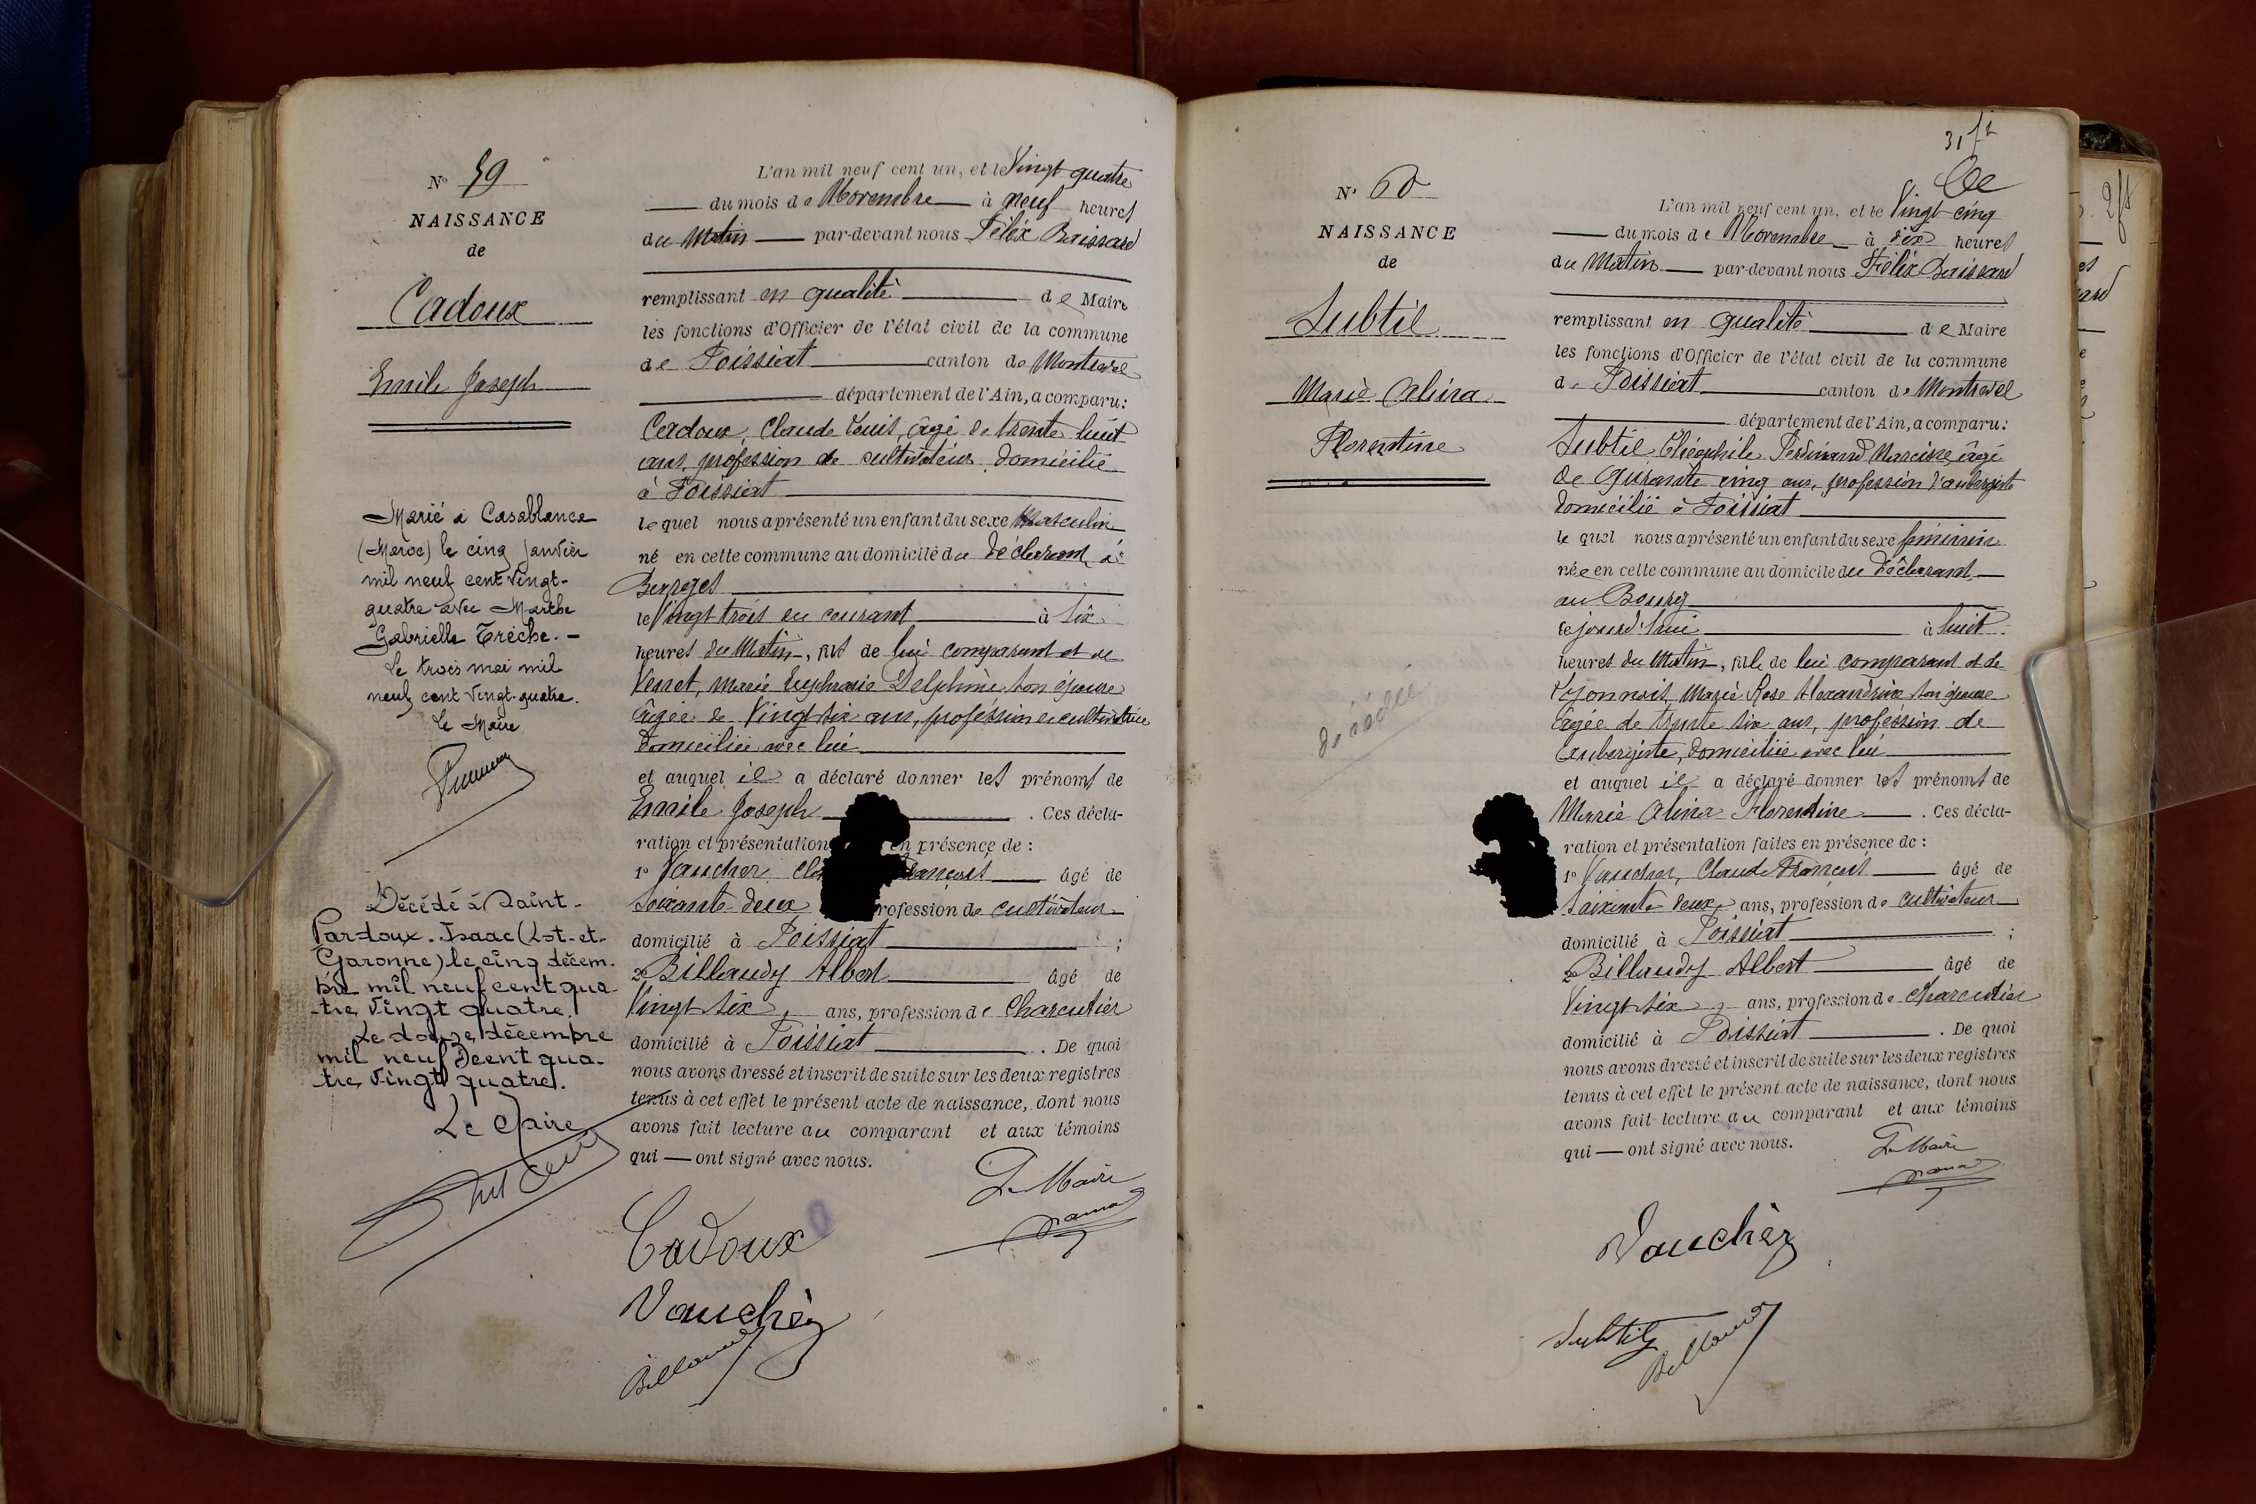 N° 59
NAISSANCE
de
Cadoux
Emile Joseph
Marié à Casablanca
(Maroc) le cinq janvier
mil neuf cent vingt-
quatre avec Marthe
Gabrielle Trèche. -
Le trois mai mil
neuf cent vingt-quatre.
Le Maire
Décédé à Saint-
Pardoux-Isaac (Lot-et-
Garonne) le cinq décem-
bre mil neuf cent qua-
tre vingt quatre.
Le douze décembre
mil neuf cent qua-
tre vingt quatre.
Le Maire
L'an mil neuf cent un, et le Vingt quatre
du mois de Novembre à neuf heures
du Matin par-devant nous Félix
remplissant en qualité de Maire
les fonctions d'Officier de l'état civil de la commune
de Foissiat canton de Montrevel
département de l'Ain, a comparu:
Cadoux, Claude Louis, âgé de trente huit
ans, profession de cultivateur, domicilié
à Foissiat
lequel nous a présenté un enfant du sexe Masculin
né en cette commune au domicile du déclarant, à
le Vingt trois du courant à six
heures du Matin, fils de lui comparant et de
Marie Euphrasie Delphine son épouse
âgée de Vingt six ans, profession de cultivatrice
domiciliée avec lui
et auquel il a déclaré donner les prénoms de
Emile Joseph . Ces décla-
ration et présentation en présence de :
1° Vaucher François âgé de
Soixante deux profession de cultivateur
domicilié à Foissiat ;
2° Billaudy Albert âgé de
Vingt six, ans, profession de Charcutier
domicilié à Foissiat . De quoi
nous avons dressé et inscrit de suite sur les deux registres
tenus à cet effet le présent acte de naissance, dont nous
avons fait lecture au comparant et aux témoins
qui — ont signé avec nous.
Le Maire
Cadoux
Vaucher
Billaudy
31
N° 60
NAISSANCE
de
Subtil
Marie Alina
Florentine
décédée
L'an mil neuf cent un, et le Vingt cinq
du mois de Novembre à dix heures
du Matin par-devant nous Félix
remplissant en qualité de Maire
les fonctions d'Officier de l'état civil de la commune
de Foissiat canton de Montrevel
département de l'Ain, a comparu:
Subtil Théophile Ferdinand Narcisse, âgé
de Quarante cinq ans, profession d'aubergiste
domicilié à Foissiat
le quel nous a présenté un enfant du sexe féminin
née en cette commune au domicile du déclarant
au Bourg
ce jourd'hui à huit
heures du Matin, fille de lui comparant et de
Lyonnais, Marie Rose Alexandrine son épouse
âgée de trente six ans, profession de
Aubergiste, domiciliée avec lui
et auquel il a déclaré donner les prénoms de
Marie Alina Florentine . Ces décla-
ration et présentation faites en présence de :
1° Vaucher, Claude François âgé de
Soixante deux ans, profession de cultivateur
domicilié à Foissiat ;
2° Billaudy Albert âgé de
Vingt six ans, profession de charcutier
domicilié à Foissiat . De quoi
nous avons dressé et inscrit de suite sur les deux registres
tenus à cet effet le présent acte de naissance, dont nous
avons fait lecture au comparant et aux témoins
qui — ont signé avec nous.
Le Maire
Vaucher
Subtil
Billaudy